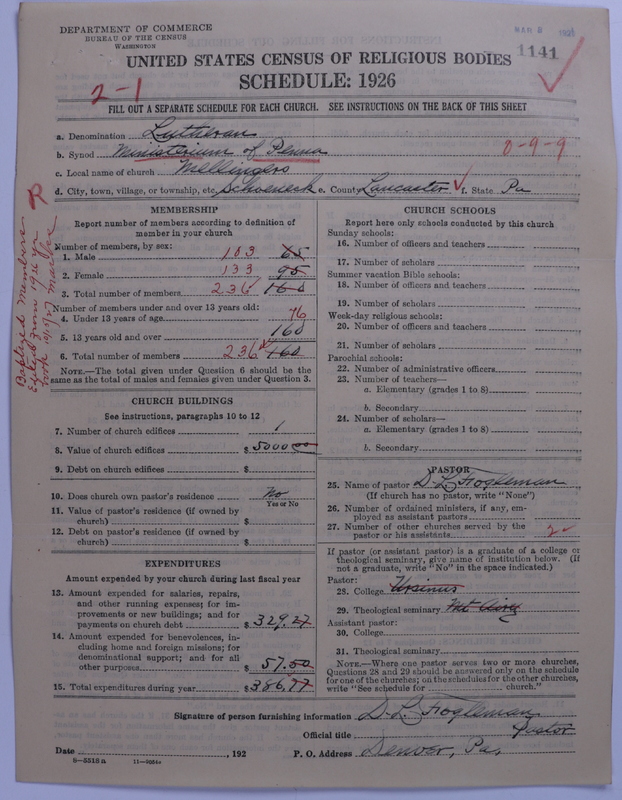 DEPARTMENT OF COMMERCE
BUREAU OF THE CENSUS
WASHINGTON
MAR 8 192
1141
UNITED STATES CENSUS OF RELIGIOUS BODIES
SCHEDULE: 1926
2-1
FILL OUT A SEPARATE SCHEDULE FOR EACH CHURCH. SEE INSTRUCTIONS ON THE BACK OF THIS SHEET
a. Denomination Lutheran
b. Synod Ministerium of Penna
0-9-9
c. Local name of church Mellingers
d. City, town, village, or township, etc. Schoeneck e. County Lancaster f. State Pa
Baptized Members
from 1926 yr
book
MEMBERSHIP
Report number of members according to definition of member in your church
Number of members, by sex:
1. Male 103 65
2. Female 133 95
3. Total number of members 236 160
Number of members under and over 13 years old:
4. Under 13 years of age 76
5. 13 years old and over 160
6. Total number of members 236 160
NOTE.—The total given under Question 6 should be the same as the total of males and females given under Question 3.
CHURCH BUILDINGS
See instructions, paragraphs 10 to 12
7. Number of church edifices 1
8. Value of church edifices $ 5000 00
9. Debt on church edifices $
10. Does church own pastor's residence No
Yes or No
11. Value of pastor's residence (if owned by church) $
12. Debt on pastor's residence (if owned by church) $
EXPENDITURES
Amount expended by your church during last fiscal year
13. Amount expended for salaries, repairs, and other running expenses; for improvements or new buildings; and for payments on church debt $ 329.27
14. Amount expended for benevolences, including home and foreign missions; for denominational support; and for all other purposes $ 57.50
15. Total expenditures during year $ 386.77
CHURCH SCHOOLS
Report here only schools conducted by this church
Sunday schools:
16. Number of officers and teachers
17. Number of scholars
Summer vacation Bible schools:
18. Number of officers and teachers
19. Number of scholars
Week-day religious schools:
20. Number of officers and teachers
21. Number of scholars
Parochial schools:
22. Number of administrative officers
23. Number of teachers—
a. Elementary (grades 1 to 8)
b. Secondary
24. Number of scholars—
a. Elementary (grades 1 to 8)
b. Secondary
PASTOR
25. Name of pastor D. L. Fogleman
(If church has no pastor, write "None")
26. Number of ordained ministers, if any, employed as assistant pastors
27. Number of other churches served by the pastor or his assistants 2
If pastor (or assistant pastor) is a graduate of a college or theological seminary, give name of institution below. (If not a graduate, write "No" in the space indicated.)
Pastor:
28. College Ursinus
29. Theological seminary Mt Airy
Assistant pastor:
30. College
31. Theological seminary
NOTE.—Where one pastor serves two or more churches, Questions 28 and 29 should be answered only on the schedule for one of the churches; on the schedules for the other churches, write "See schedule for church."
Signature of person furnishing information D. L. Fogleman
Official title Pastor
Date , 192 P. O. Address Denver, Pa.
8-5518a